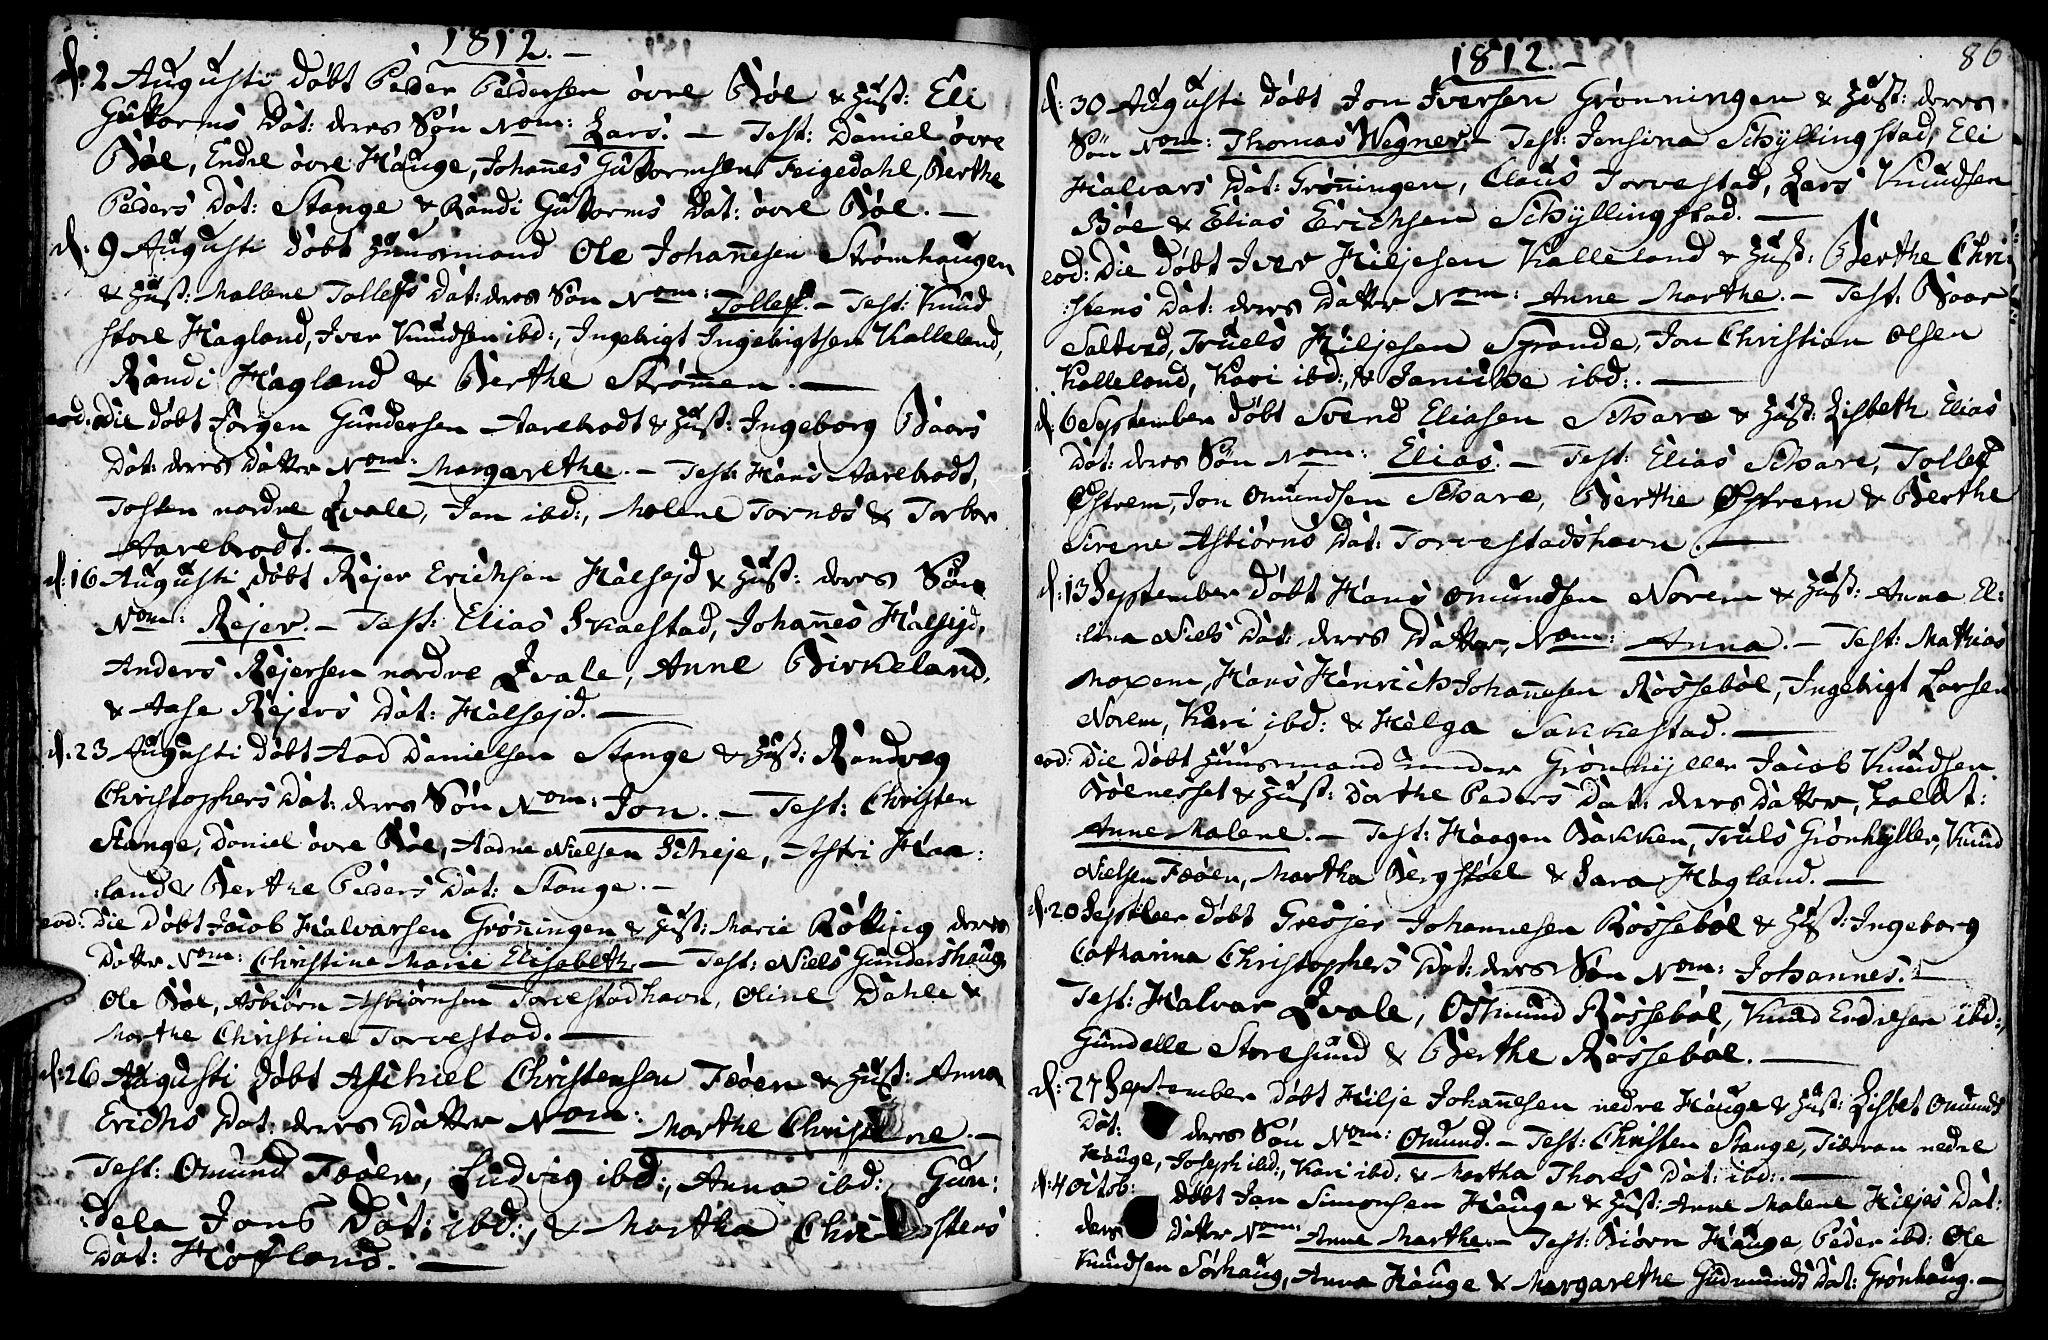 1812.-
d: 2 Augusti døbt Peder Pedersen øvre Bøe & Hust: Eli
Guttorms Dat: deres Søn Nom: Lars. - Test: Daniel øvre
Bøe, Endre øvre Hauge, Johannes Guttormsen Feigedahl, Berthe
Peders Dat: Stange & Randi Guttorms Dat: øvre Bøe. -
d: 9 Augusti døbt Huusmand Ole Johannesen Strømhaugen
& Hust: Mallene Tollefs Dat: deres Søn Nom: Tollef. - Test: Knud
store Hagland, Iver Knudsen ibd:, Ingebrigt Ingebrigtsen Kalleland,
Randi Hagland & Berthe Strømmen. -
eod: Die døbt Jørgen Gundersen Aarebrodt & Hust: Ingeborg Baars
Dat: deres Datter Nom: Margarethe. - Test: Hans Aarebrodt,
Tosten nordre Qvale, Jan ibd:, Malene Tornæs & Torbor
Aarebrodt. -
d: 16 Augusti døbt Rejer Erichsen Halsejd & Hust: deres Søn
Nom: Rejer. - Test: Elias Skaestad, Johannes Halsejd,
Anders Rejersen nordre Qvale, Anne Birkeland,
& Aase Rejers Dat: Halsejd. -
d: 23 Augusti døbt Aad Danielsen Stange & Hust: Randveg
Christophers Dat: deres Søn Nom: Jon. - Test: Christen
Stange, Daniel øvre Bøe, Aadne Nielsen Scheje, Astri Haa:
:land & Berthe Peders Dat: Stange. -
eod: Die døbt Jacob Halvarsen Grønningen & Hust: Marie Rølling deres
Datter Nom: Christine Marie Elisabeth. - Test: Niels Gundershaug,
Ole Bøe, Asbiørn Asbiørnsen Torvestadhavn, Oline Dahle &
Marthe Christine Torvestad. -
d: 26 Augusti døbt Aschiel Christensen Fæøen & Hust: Anna
Erichs Dat: deres Datter Nom: Marthe Christine. -
Test: Omund Fæøen, Ludvig ibd:, Anna ibd:, Gun:
:dela Jons Dat: ibd:, & Martha Christens
Dat: Høfland. -
1812.- 86
d: 30 Augusti døbt Jon Iversen Grønningen & Hust: deres
Søn Nom: Thomas Wegner. - Test: Jensina Schyllingstad, Eli
Halvars Dat: Grønningen, Claus Torvestad, Lars Knudsen
Bøe & Elias Erichsen Schyllingstad. -
eod: Die døbt Iver Hiljesen Kalleland & Hust: Berthe Chri:
:stens Dat: deres Datter Nom: Anne Marthe. - Test: Baar
Saltved, Truels Hiljesen Spande, Jon Christian Olsen
Kalleland, Kari ibd:, & Janicke ibd:. -
d: 6 September døbt Svend Eliasen Schare & Hust: Lisbeth Elias
Dat: deres Søn Nom: Elias. - Test: Elias Schare, Tollef
Østrem, Jon Omundsen Schare, Berthe Østrem & Berthe
Sirene Asbiørns Dat: Torvestadshavn. -
d: 13 September døbt Hans Omundsen Norem & Hust: Anna El:
:lina Niels Dat: deres Datter, Nom: Anna. - Test: Mathias
Noxem, Hans Henrich Johannesen Røssebøe, Ingebrigt Larsen
Norem, Kari ibd: & Helga Sakkestad. -
eod: Die døbt Huusmand under Grønhyller Jacob Knudsen
Bøenesset & Hust: Dorthe Peders Dat: deres Datter, kaldt:
Anne Malene. - Test: Haagen Bakken, Truls Grønhyller, Knud
Nielsen Fæøen, Martha Bergstøel & Sara Hagland. -
d: 20 Septber døbt Gresjer Johannesen Røssebøe & Hust: Ingeborg
Catharina Christophers Dat: deres Søn Nom: Johannes. -
Test: Halvar Qvale, Osmund Røssebøe, Knud Endresen ibd:,
Gundelle Storesund & Berthe Røssebøe. -
d: 27 September døbt Hilje Johannesen nedre Hauge & Hust: Lisbet Omunds
Dat: deres Søn Nom: Omund. - Test: Christen Stange, Tieran nedre
Hauge, Joseph ibd:, Kari ibd: & Martha Thores Dat: ibd:. -
d: 4 Octob: døbt Jan Simonsen Hauge & Hust: Anne Malene Hiljes Dat:
deres Datter Nom: Anne Marthe. - Test: Biørn Hauge, Peder ibd: Ole
Knudsen Sørhaug, Anna Hauge & Margarethe Gudmunds Dat: Grønhaug. -